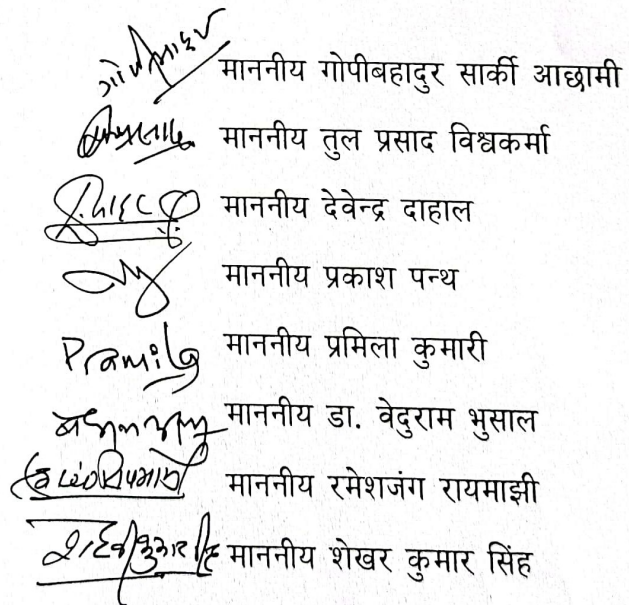 माननीय गोपीबहादुर सार्की आछामी
माननीय तुल प्रसाद विश्वकर्मा
माननीय देवेन्द्र दाहाल
माननीय प्रकाश पन्थ
Pramila माननीय प्रमिला कुमारी
माननीय डा. वेदुराम भुसाल
माननीय रमेशजंग रायमाझी
माननीय शेखर कुमार सिंह